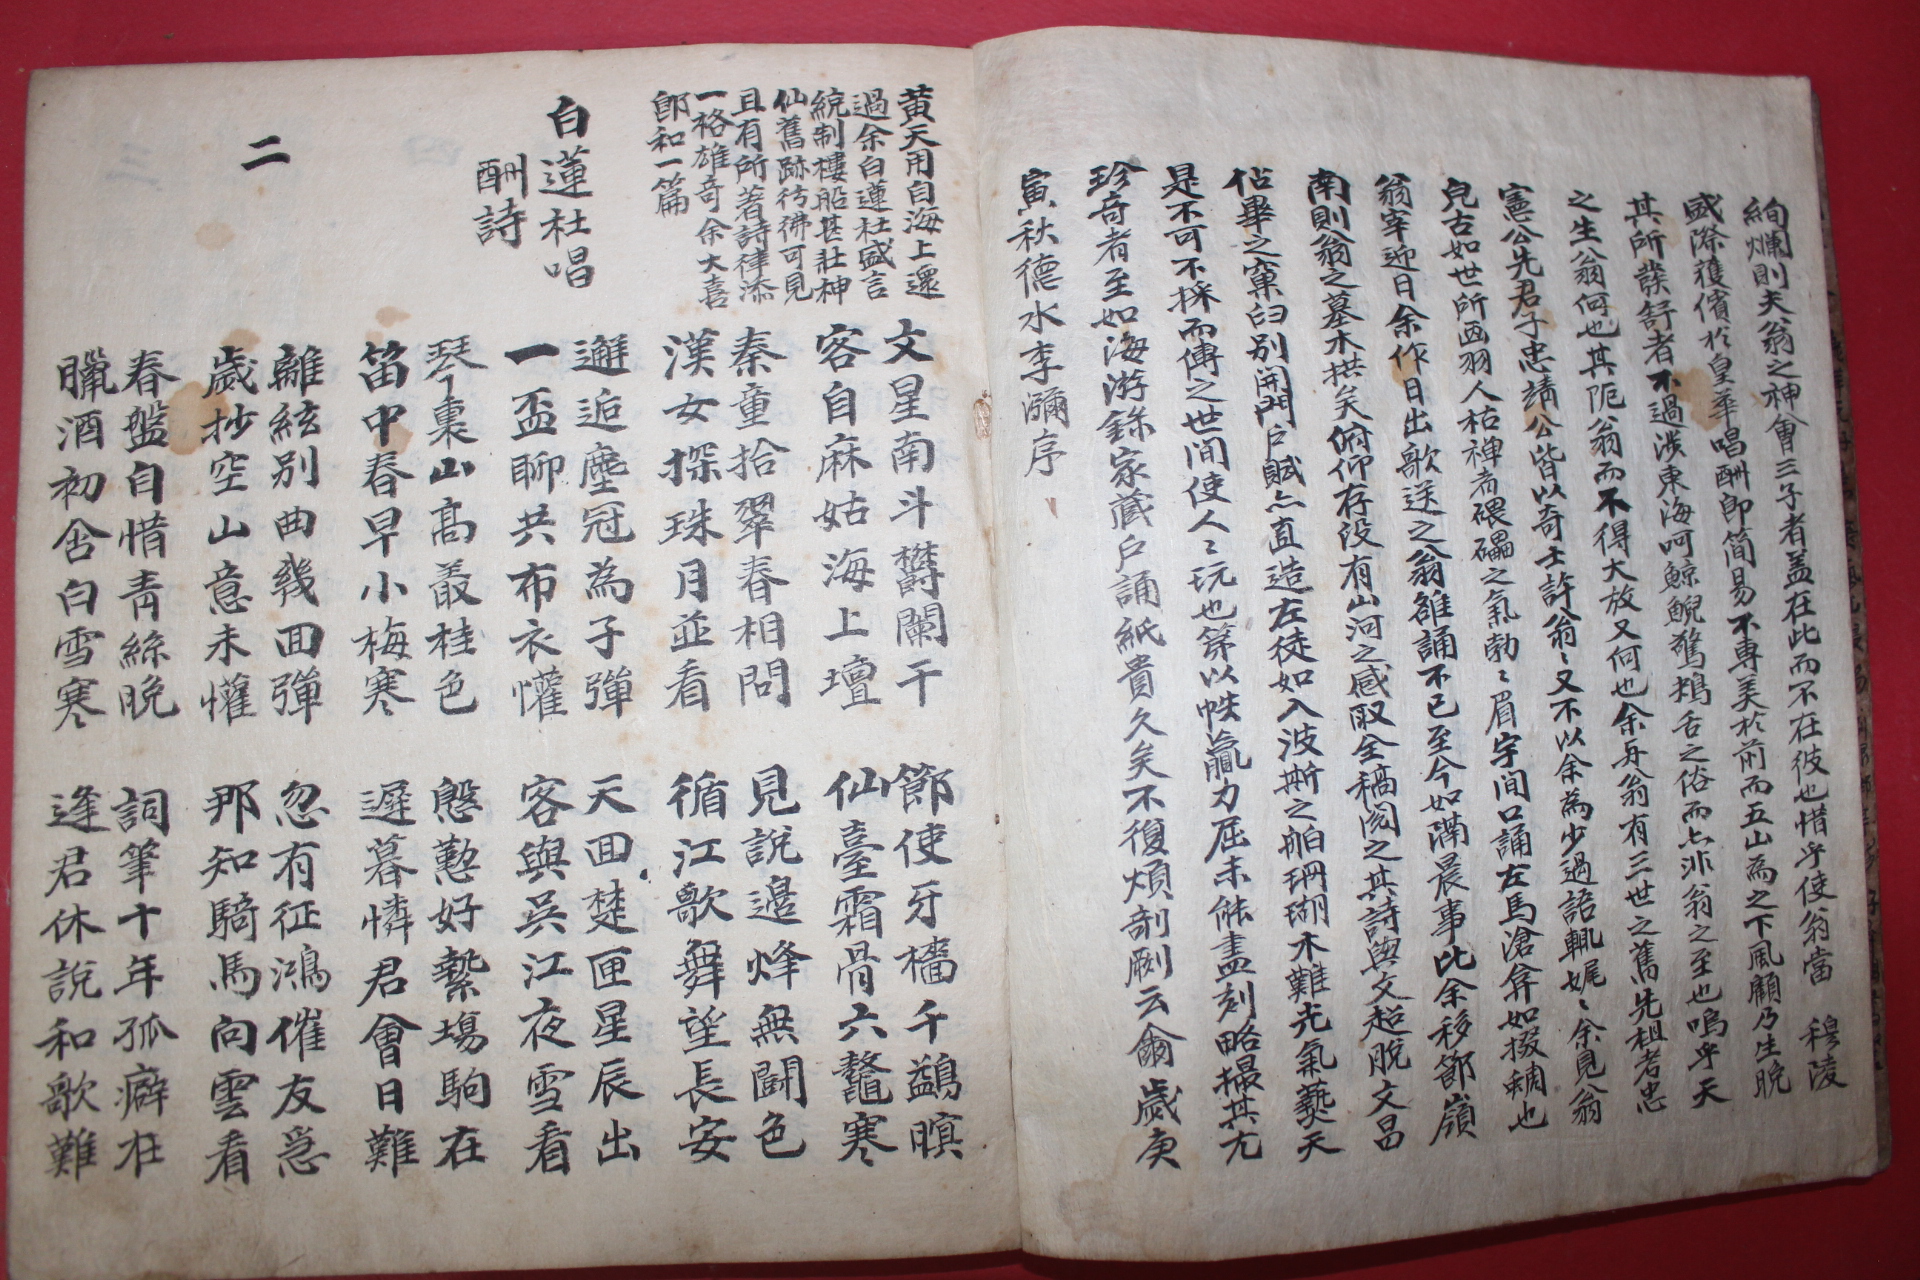 絢爛則夫翁之神會三子者盖在此而不在彼也惜乎使翁當 穆陵
盛際獲儐於皇華唱酬卽簡易不專美於前而五山為之下風顧乃生晚
其所發舒者不過涉東海呵鯨鯢鶩鴂舌之俗而亦非翁之至也嗚乎天
之生翁何也其阨翁而不得大放又何也余与翁有三世之舊先祖考忠
憲公先君子忠靖公皆以奇士許翁翁又不以余為少過語輒娓〻余見翁
皃古如世所画羽人枯禅者磈礧之氣勃〻眉宇間口誦左馬滄弇如掇蜩也
翁宰迎日余作日出歌送之翁雒誦不已至今如隔晨事比余移節嶺
南則翁之墓木拱矣俯仰存没有山河之感取全稿閲之其詩與文超脫文昌
佔畢之窠臼別開門戶賦亦直造左徒如入波斯之舶珊瑚木難光氣爇天
是不可不採而傳之世間使人〻玩也第以帙贏力屈未能盡刻略撮其尤
珍奇者至如海游錄家蔵戶誦紙貴久矣不復煩剞劂云爾歲庚
寅秋德水李瀰序
黃天用自海上還
過余白蓮社盛言
統制樓船甚壯神
仙舊跡彷彿可見
且有所著詩律添
一格雄奇余大喜
卽和一篇
白蓮社唱
酬詩
文星南斗欝闌干 節使牙檣千鷁暝
客自麻姑海上壇 仙臺霜骨六鼇寒
秦童拾翠春相問 見說邊烽無鬪色
漢女探珠月並看 循江歌舞望長安
邂逅塵冠為子彈 天回楚匣星辰出
一盃聊共布衣懽 客與吳江夜雪看
琴裏山高叢桂色 慇懃好縶場駒在
笛中春早小梅寒 遲暮憐君會日難
二
離絃別曲幾回彈 忽有征鴻催友爲
歲抄空山意未懽 那知騎馬向雲看
春盤自惜靑絲晚 詞筆十年孤癖在
臘酒初含白雪寒 逢君休說和歌難